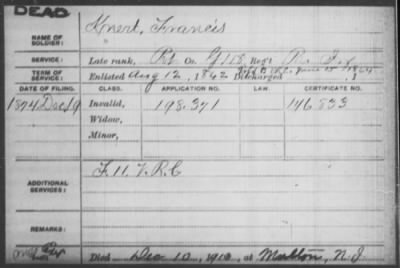 DEAD
NAME OF SOLDIER: Knerl, Francis
SERVICE: Late rank, Pvt Co. G 158, Reg't Inf
TERM OF SERVICE: Enlisted Aug 12, 1862 Discharged
DATE OF FILING. CLASS. APPLICATION NO. LAW. CERTIFICATE NO.
1874 Dec 19 Invalid, 198.371 146833
Widow,
Minor,
ADDITIONAL SERVICES: V.R.C
REMARKS:
Died Dec 10, 1910, at N.J.